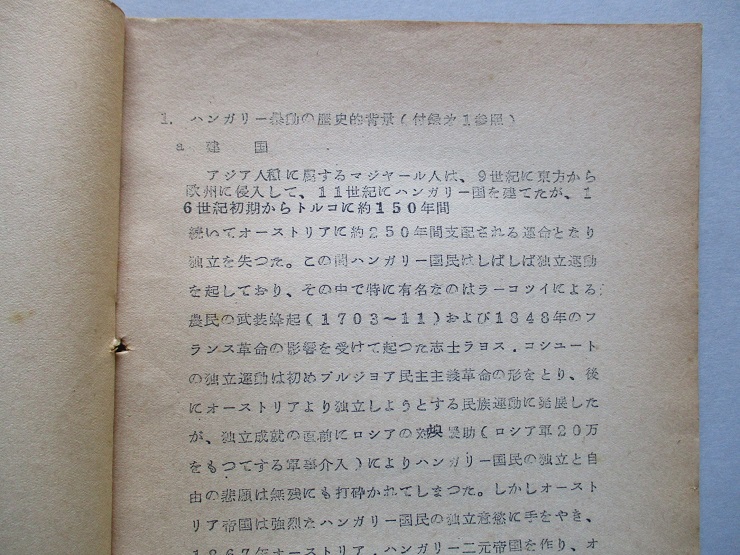 1. ハンガリー暴動の歴史的背景(付録才1参照)
a 建 国
アジア人種に属するマジヤール人は、9世紀に東方から
欧州に侵入して、11世紀にハンガリー国を建てたが、1
6世紀初期からトルコに約150年間
続いてオーストリアに約250年間支配される運命となり
独立を失つた。この間ハンガリー国民はしばしば独立運動
を起しており、その中で特に有名なのはラーコツイによる
農民の武装蜂起(1703~11)および1848年のフ
ランス革命の影響を受けて起つた志士ラヨス.コシユート
の独立運動は初めブルジョア民主主義革命の形をとり、後
にオーストリアより独立しようとする民族運動に発展した
が、独立成就の直前にロシアの対墺援助(ロシア軍20万
をもつてする軍事介入)によりハンガリー国民の独立と自
由の悲願は無残にも打砕かれてしまつた。しかしオースト
リア帝国は強烈なハンガリー国民の独立意慾に手をやき、
1867年オーストリア.ハンガリー二元帝国を作り、オ